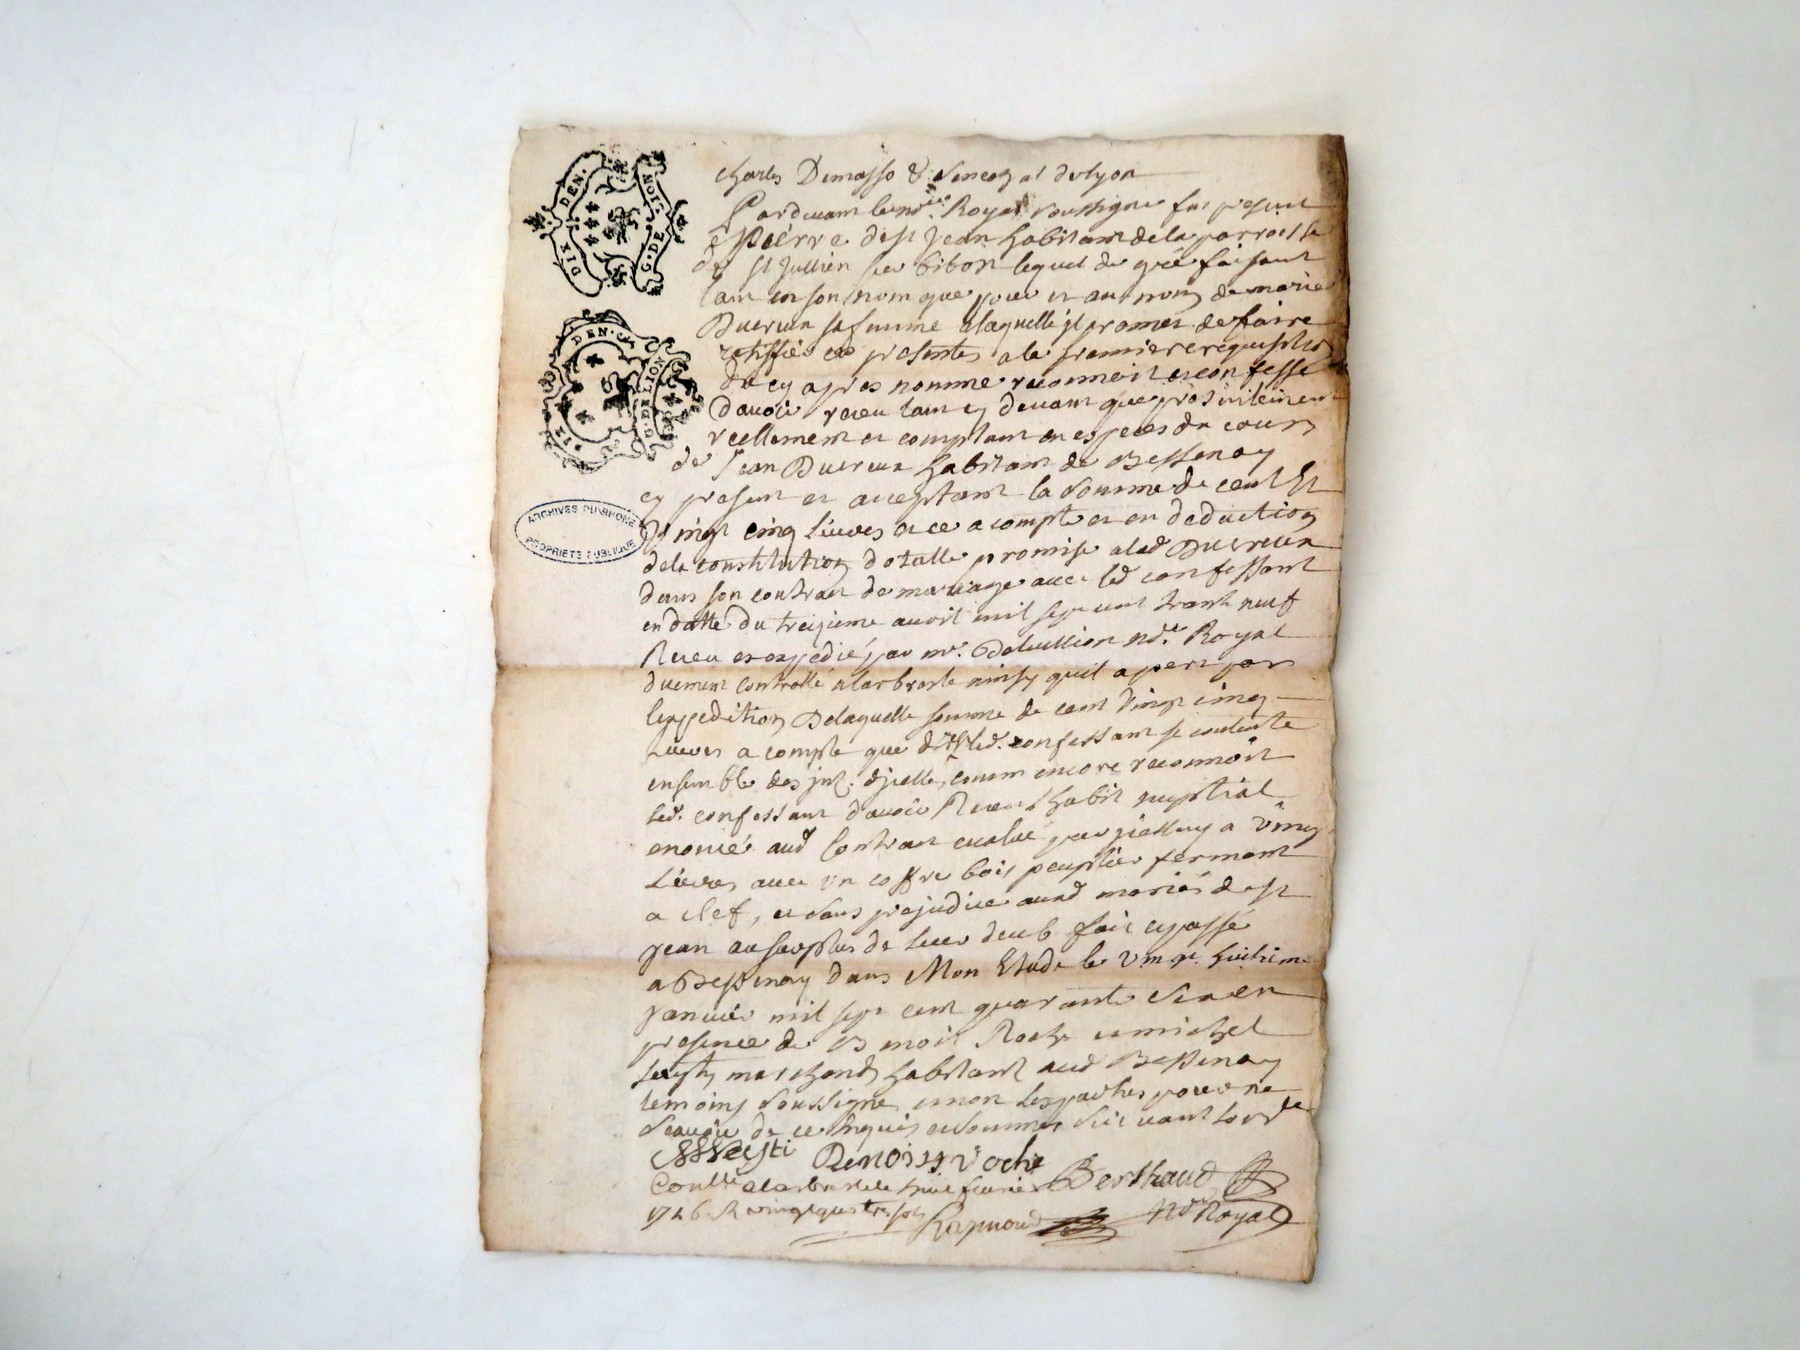 DIX DEN.
G. DE
NOIS
12. DEN.
G. DE LION
ARCHIVES DU RHONE
PROPRIETE PUBLIQUE
Charles Demasso & Senechal de lyon
Pardevant le nore. Royal soussigné fut present
Pierre de st Jean habitant de la parroisse
de st Jullien sur bibost lequel de gré faisant
tant en son nom que pour et au nom de marie
Ducreux sa femme a laquelle jl promet de faire
ratiffier ces presentes a la premiere requisition
du cy apres nommé reconnoit et confesse
davoir receu tant cy devant que presentement
reellement et comptant en especes du cours
de Jean Ducreux habitant de Bessenay
cy present et acceptant la somme de cent Et
Vingt cinq livres et ce a compte et en deduction
de la constitution dotalle promise a lad Ducreux
dans son contrait de mariage avec led confessant
en datte du treizieme avril mil sept cent trante neuf
Receu et expedié par me. nore. Royal
duement controllé a larbresle ainsy quil apert par
lexpedition Delaquelle somme de cent Vingt cinq
Livres a compte que dessus led. confessant se contente
ensemble des jnt. djcelle, comm encore reconnoit
led. confessant davoir Receu Lhabit nuptial
enoncé aud Contrait evalué a Vingt
Livres avec un coffre bois peuplier fermant
a clef, et sans prejudice auxd mariés de st
jean au surplus de leur deub fait et passé
a Bessenay dans Mon Etude le Vingt. huitieme
Janvier mil sept cent quarante Six en
presence de Benoit Roche et michel
marchands habitant aud Bessenay
temoins Soussignes et non Les parties pour ne
Scavoir de ce Enquis et Sommes Suivant Lordce
Benoist roche
Berthaud
Conllé a larbresle le huit fevrier
1746. R vingt quatre sols
Raymond
Nore Royal